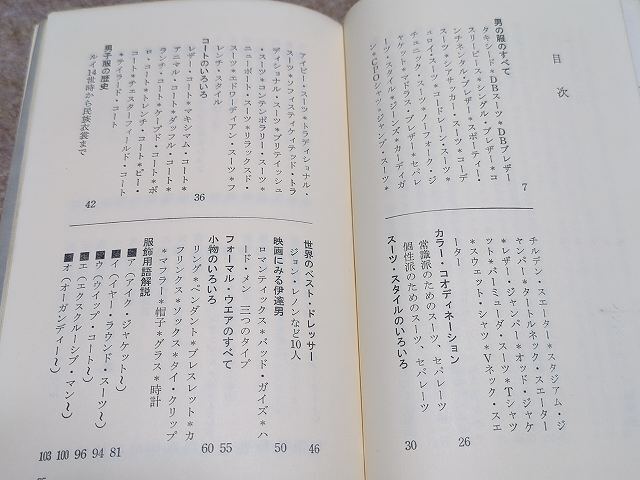 目次
男の服のすべて 7
タキシード*DBスーツ*DBブレザー
スリーピース*シングル・ブレザー*コ
ンチネンタル・ブレザー*スポーティー・
スーツ*シアサッカー・スーツ*コーデ
ュロイ・スーツ*コードレーン・スーツ*
チュニック・スーツ*ノーフォーク・ジ
ャケット*マドラス・ブレザー*セパレ
ーツ・スタイル*ジーンズ*カーディガ
ン*CPOシャツ*ジャンプ・スーツ*
チルデン・スエーター*スタジアム・ジ
ャンパー*タートルネック・スエーター
*レザー・ジャンパー*オッド・ジャケ
ット*バーミューダ・スーツ*Tシャツ
*スウェット・シャツ*Vネック・スエ
ーター
カラー・コオディネーション 26
常識派のためのスーツ、セパレーツ
個性派のためのスーツ、セパレーツ
スーツ・スタイルのいろいろ 30
アイビー・スーツ*トラディショナル・
スーツ*ソフィスティケイテッド・トラ
ディショナル・スーツ*ブリティッシュ
・スーツ*コンテンポラリー・スーツ*
ニューポート・スーツ*リラックスド・
スーツ*エドワーディアン・スーツ*フ
レンチ・スタイル
コートのいろいろ 36
レザー・コート*マキシマム・コート*
アニマル・コート*ダッフル・コート*
ランチ・コート*ケープド・コート*ポ
ロ・コート*トレンチ・コート*ピー・
コート*チェスターフィールド・コート
*テイラード・コート
男子服の歴史 42
ルイ14世時から民族衣裳まで
世界のベスト・ドレッサー 46
ジョン・レノンなど10人
映画にみる伊達男 50
ロマンティックス*バッド・ガイズ*ハ
ード・メン 三つのタイプ
フォーマル・ウエアのすべて 55
小物のいろいろ 60
リング*ペンダント*ブレスレット*カ
フリンクス*ソックス*タイ・クリップ
*マフラー*帽子*グラス*時計
服飾用語解説
ア(アイク・ジャケット〜) 81
イ(イヤー・ラウンド・スーツ〜) 94
ウ(ウイップ・コート〜) 96
エ(エクスクルーシブ・マン〜) 100
オ(オーガンディー〜) 103